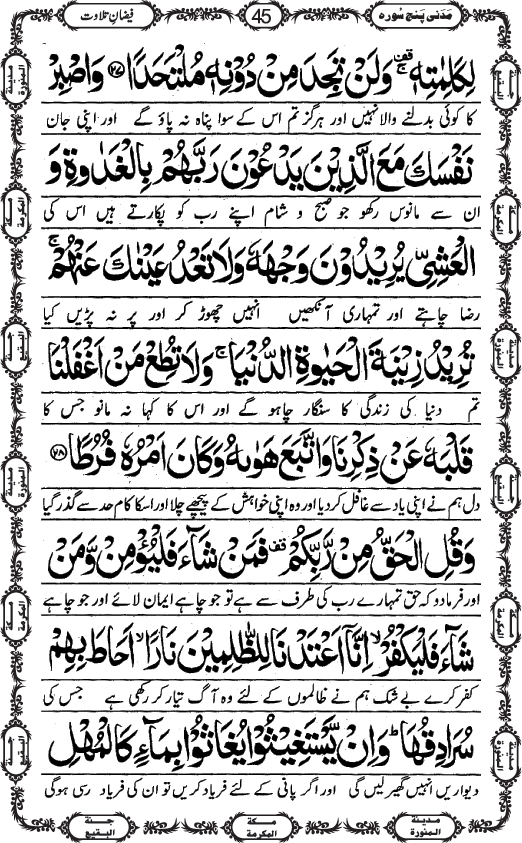 مَدَنی پنج سُورہ 45 فیضانِ تلاوت
لِكَلِمٰتِهٖ ۚ۫ وَلَنْ تَجِدَ مِنْ دُوْنِهٖ مُلْتَحَدًا ﴿۲۷﴾ وَاصْبِرْ
کا کوئی بدلنے والا نہیں اور ہرگز تم اس کے سوا پناہ نہ پاؤ گے اور اپنی جان
نَفْسَكَ مَعَ الَّذِيْنَ يَدْعُوْنَ رَبَّهُمْ بِالْغَدٰوةِ وَ
ان سے مانوس رکھو جو صبح و شام اپنے رب کو پکارتے ہیں اس کی
الْعَشِيِّ يُرِيْدُوْنَ وَجْهَهٗ وَلَا تَعْدُ عَيْنٰكَ عَنْهُمْ ۚ
رضا چاہتے اور تمہاری آنکھیں انہیں چھوڑ کر اور پر نہ پڑیں کیا
تُرِيْدُ زِيْنَةَ الْحَيٰوةِ الدُّنْيَا ۚ وَلَا تُطِعْ مَنْ اَغْفَلْنَا
تم دنیا کی زندگی کا سنگار چاہو گے اور اس کا کہا نہ مانو جس کا
قَلْبَهٗ عَنْ ذِكْرِنَا وَاتَّبَعَ هَوٰىهُ وَكَانَ اَمْرُهٗ فُرُطًا ﴿۲۸﴾
دل ہم نے اپنی یاد سے غافل کر دیا اور وہ اپنی خواہش کے پیچھے چلا اور اسکا کام حد سے گذر گیا
وَقُلِ الْحَقُّ مِنْ رَّبِّكُمْ ۫ فَمَنْ شَآءَ فَلْيُؤْمِنْ وَّمَنْ
اور فرما دو کہ حق تمہارے رب کی طرف سے ہے تو جو چاہے ایمان لائے اور جو چاہے
شَآءَ فَلْيَكْفُرْ ۙ اِنَّاۤ اَعْتَدْنَا لِلظّٰلِمِيْنَ نَارًا ۙ اَحَاطَ بِهِمْ
کفر کرے بے شک ہم نے ظالموں کے لئے وہ آگ تیار کر رکھی ہے جس کی
سُرَادِقُهَا ؕ وَاِنْ يَّسْتَغِيْثُوْا يُغَاثُوْا بِمَآءٍ كَالْمُهْلِ
دیواریں انہیں گھیر لیں گی اور اگر پانی کے لئے فریاد کریں تو ان کی فریاد رسی ہوگی
مدینۃ المنورۃ
مکۃ المکرمۃ
جنۃ البقیع
مدینۃ المنورۃ
جنۃ البقیع
مکۃ المکرمۃ
مدینۃ المنورۃ
جنۃ البقیع
جنۃ البقیع
مکۃ المکرمۃ
مدینۃ المنورۃ
جنۃ البقیع
مکۃ المکرمۃ
مدینۃ المنورۃ
جنۃ البقیع
مکۃ المکرمۃ
مدینۃ المنورۃ